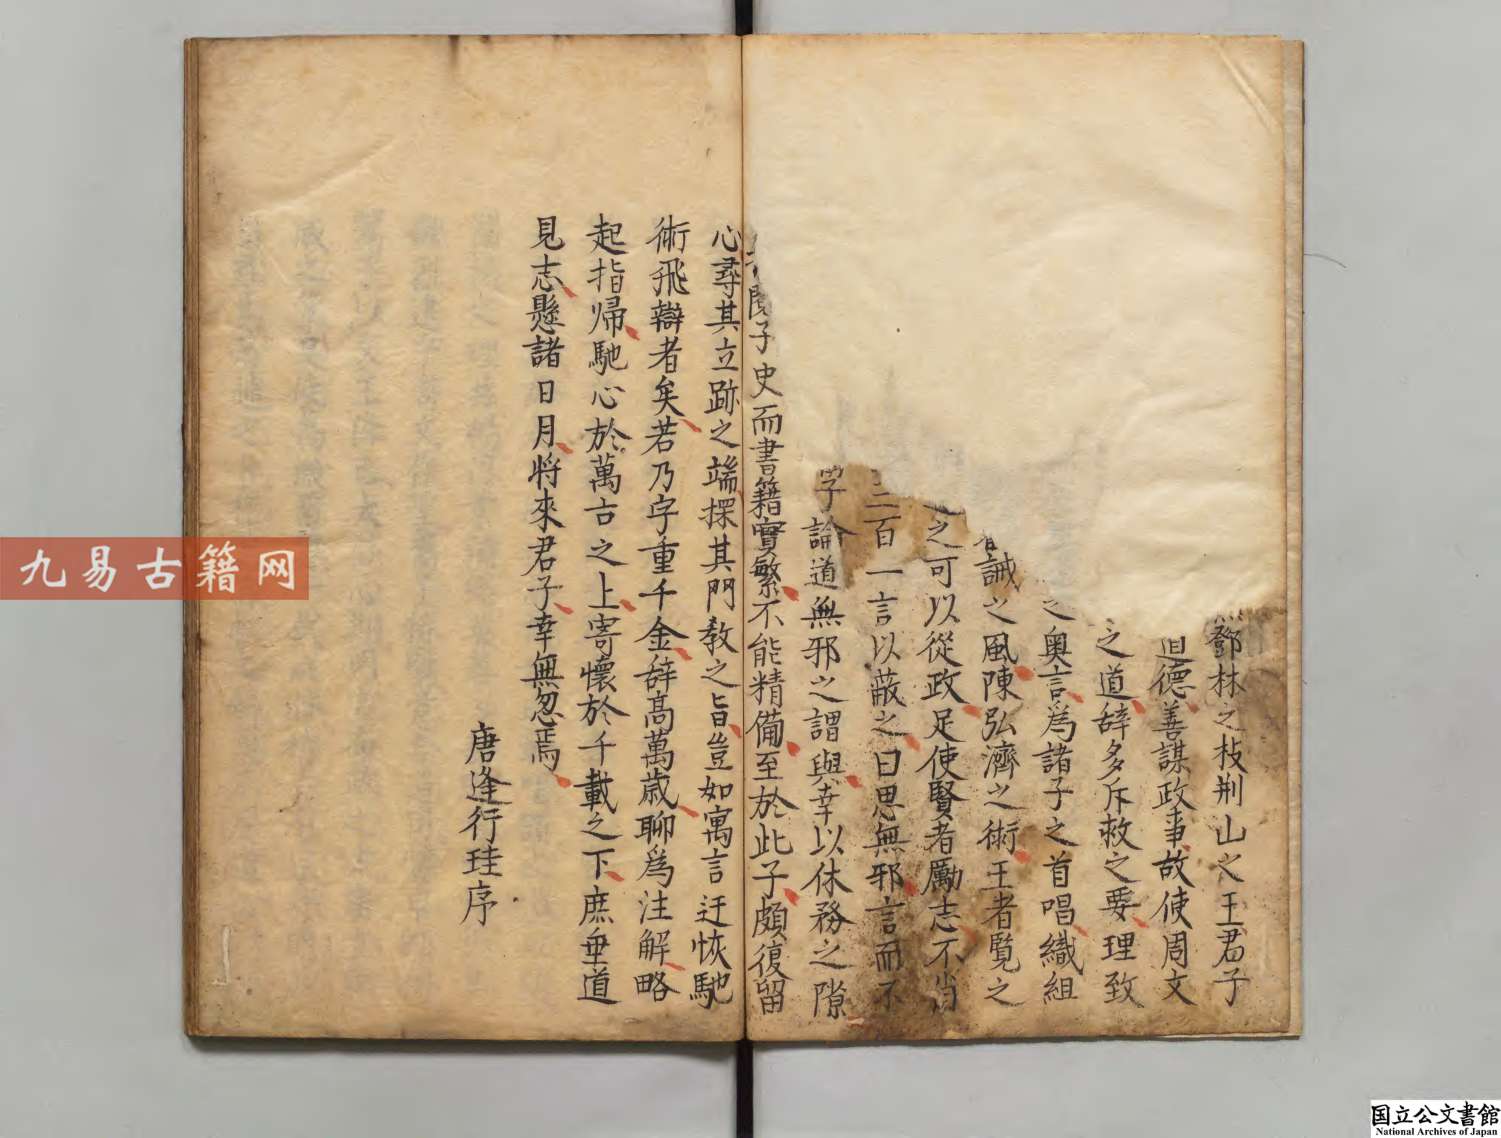 鄧林之枝荆山之玉君子
道德善謀政事故使周文
之道辞多斥救之要理致
之奧言爲諸子之首唱織組
誡之風陳弘濟之術王者覽之
之可以從政足使賢者勵志不肖
三百一言以蔽之曰思無邪言而不
論道無邪之謂與幸以休務之隙
閱子史而書籍實繁不能精備至於此子頗復留
心尋其立跡之端探其門教之旨豈如寓言迂恢馳
術飛辯者矣若乃字重千金辞高萬歲聊爲注解略
起指歸馳心於萬古之上寄懷於千載之下庶垂道
見志懸諸日月將來君子幸無忽焉
唐逢行珪序
九易古籍网
国立公文書館
National Archives of Japan